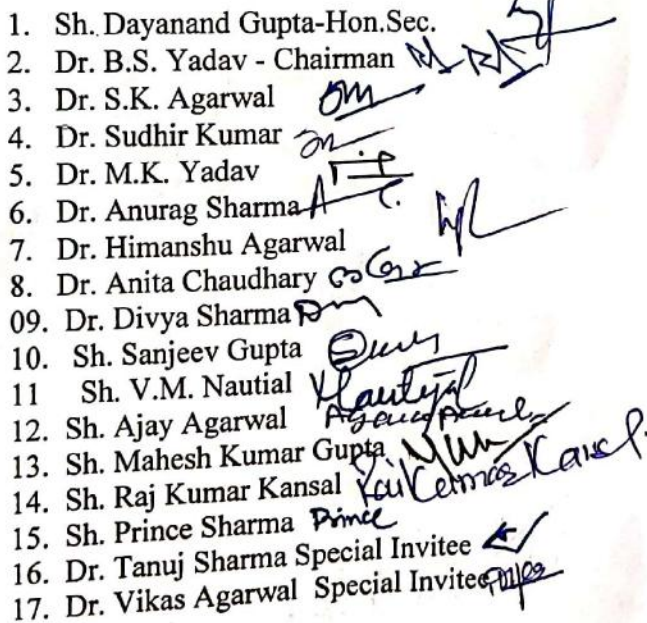 1. Sh. Dayanand Gupta-Hon.Sec.
2. Dr. B.S. Yadav - Chairman
3. Dr. S.K. Agarwal
4. Dr. Sudhir Kumar
5. Dr. M.K. Yadav
6. Dr. Anurag Sharma
7. Dr. Himanshu Agarwal
8. Dr. Anita Chaudhary
09. Dr. Divya Sharma
10. Sh. Sanjeev Gupta
11 Sh. V.M. Nautial Nautiyal
12. Sh. Ajay Agarwal
13. Sh. Mahesh Kumar Gupta
14. Sh. Raj Kumar Kansal Raj Kumar Kansal
15. Sh. Prince Sharma Prince
16. Dr. Tanuj Sharma Special Invitee
17. Dr. Vikas Agarwal Special Invitee